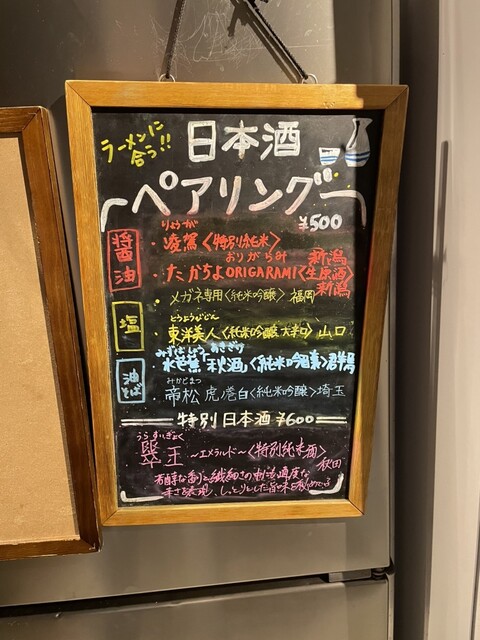 ラーメンに
合う!!
日本酒
ペアリング
¥500
醤油
りょうが
・凌駕〈特別純米〉新潟
おりがらみ
・たかちよORIGARAMI〈生原酒〉新潟
塩
・メガネ専用〈純米吟醸〉福岡
とうようびじん
・東洋美人〈純米吟醸 大辛口〉山口
油そば
みずばしょう あきざけ
・水芭蕉「秋酒」〈純米吟醸〉群馬
みかどまつ
・帝松 虎巻白〈純米吟醸〉埼玉
特別日本酒 ¥600
翠玉 ~エメラルド~〈特別純米酒〉
秋田